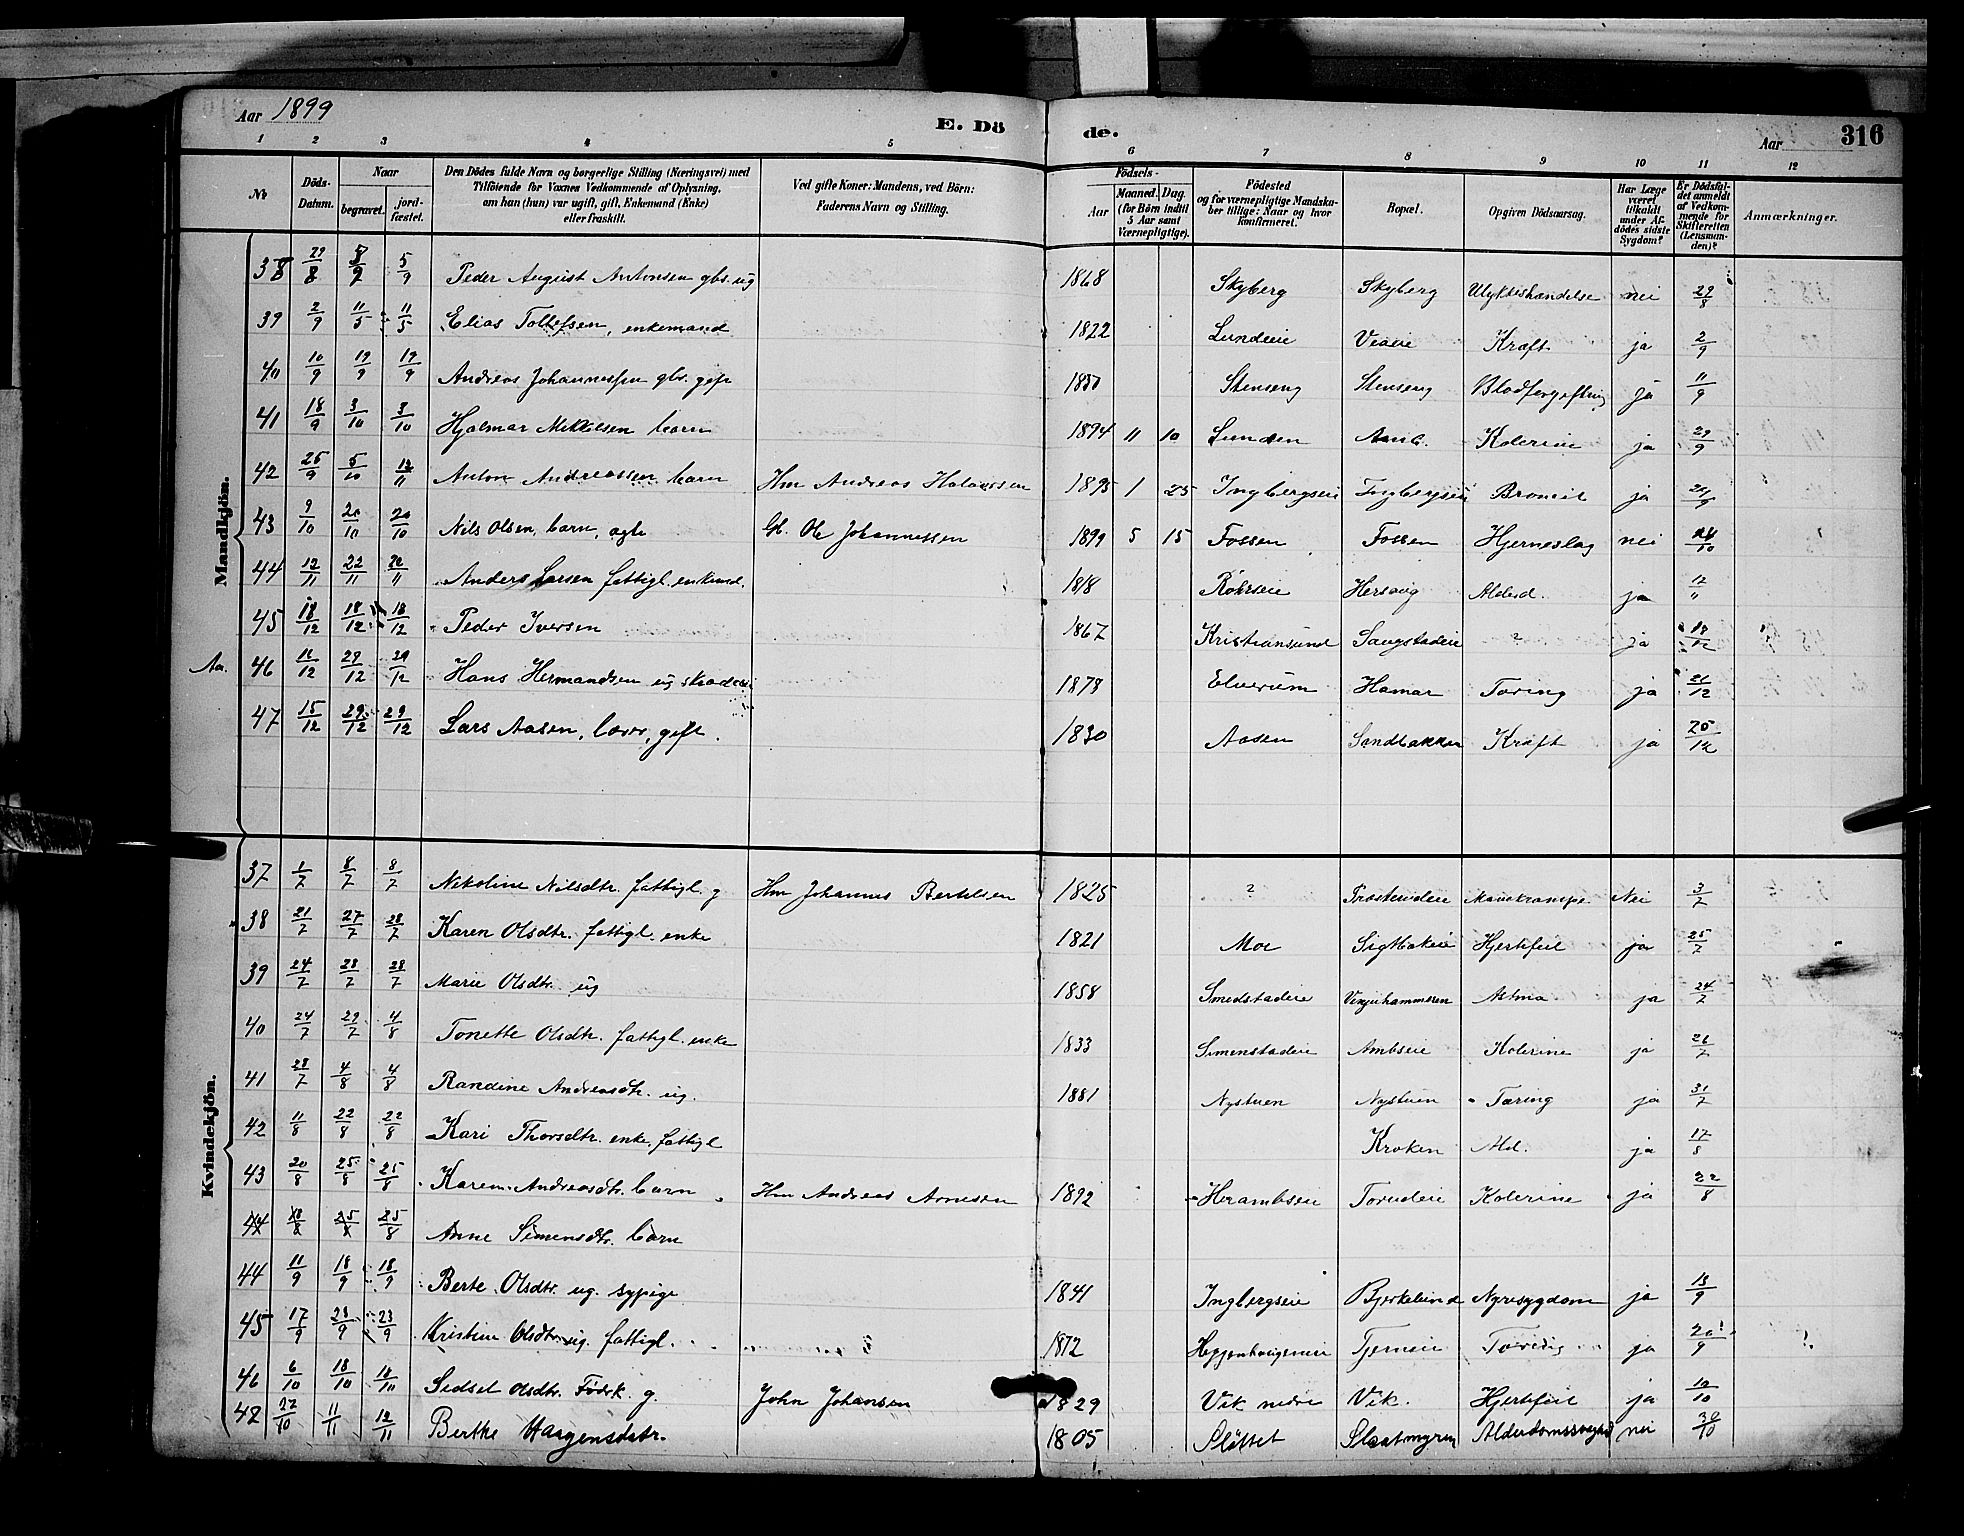 Aar 1899 E. Dö de. Aar 316
1 2 3 4 5 6 7 8 9 10 11 12
№ Döds-Datum. Naar begravet. jord-fæstet. Den Dödes fulde Navn og borgerlige Stilling (Næringsvei) med Tilföiende for Voxnes Vedkommende af Oplysning, om han (hun) var ugift, gift, Enkemand (Enke) eller fraskilt. Ved gifte Koner: Mandens, ved Börn: Faderens Navn og Stilling. Födsels- Aar Maaned. Dag. (for Börn indtil 5 Aar samt Værnepligtige). Födested og for værnepligtige Mandskaber tillige: Naar og hvor konfirmeret. Bopæl. Opgiven Dödsaarsag. Har Læge været tilkaldt under Afdödes sidste Sygdom? Er Dödsfaldet anmeldt af Vedkommende for Skifteretten (Lensmanden)? Anmærkninger.
Mandkjön.
38 5/9 Peder August Antonsen gbs. ug 1868 Skyberg Skyberg Ulykkeshændelse nei 29/8
39 2/9 11/5 11/5 Elias Tollefsen, enkemand 1822 Lundeie Kræft ja 2/9
40 10/9 19/9 19/9 Andreas Johannessen gbr. gift Stenseng Stenseng Blodforgiftning ja 11/9
41 18/9 3/10 3/10 Hjalmar Mikkelsen barn 1894 11 10 Lunden Kolerine ja 29/9
42 25/9 5/10 12/11 Anton Andreassen barn Hm Andreas 1895 1 25 Ingbergseie Ingbergseie ja
43 9/10 20/10 20/10 Nils Olsen, barn, ægte Gb. Ole Johannessen 1899 5 15 Fossen Fossen Hjerneslag nei
44 12/11 22/11 22/11 Anders Larsen fattigl. enkemd. 1818 Røhrseie Alderd. ja 17/11
45 18/12 18/12 18/12 Peder Iversen 1867 Kristiansund Saugstadeie ? ja 18/12
Aa. 46 29/12 29/12 Hans Hermandsen ug 1878 Elverum Hamar Tæring ja 21/12
47 15/12 29/12 29/12 Lars Aasen, gift. 1830 Aasen Sandbakken Kræft ja 20/12
Kvindekjön.
37 1/7 8/7 8/7 Nikoline Nilsdtr. fattigl. g Hm Johannes Bertelsen 1825 ? Mavekrampe Nei 3/7
38 21/7 27/7 28/7 Karen Olsdtr. fattigl. enke 1821 Moe Hjertefeil ja 25/7
39 24/7 28/7 28/7 Marie Olsdtr. ug 1858 Smedstadeie Astma ja 24/7
40 24/7 29/7 4/8 Tonette Olsdtr. fattigl. enke 1833 Simenstadeie Ambseie Kolerine ja 26/7
41 28/7 4/8 4/8 Randine Andreasdtr. ug. 1881 Nystuen Nystuen Tæring ja 31/7
42 11/8 22/8 22/8 Kari Thorsdtr. enke, fattigl Kroken Ald. ja 17/8
43 20/8 25/8 25/8 Karen Andreasdtr. barn Hm Andreas Arnesen 1892 Herambseie Torudeie Kolerine ja 22/8
44 25/8 25/8 Anne Simensdtr. barn
44 11/9 18/9 18/9 Berte Olsdtr. ug. sypige 1841 Ingbergseie Bjerkelund Nyresygdom ja 13/9
45 17/9 23/9 23/9 Kristine Olsdtr. ug. fattigl. 1872 Tjerneie ja 20/9
46 6/10 18/10 18/10 Sidsel Olsdtr. Føderk. g. John Johansen 1829 Vik nedre Vik. Hjertefeil ja 10/10
48 27/10 11/11 12/11 Berthe Haagensdatr. 1805 Slåttet Alderdomssvaghed nei 30/10